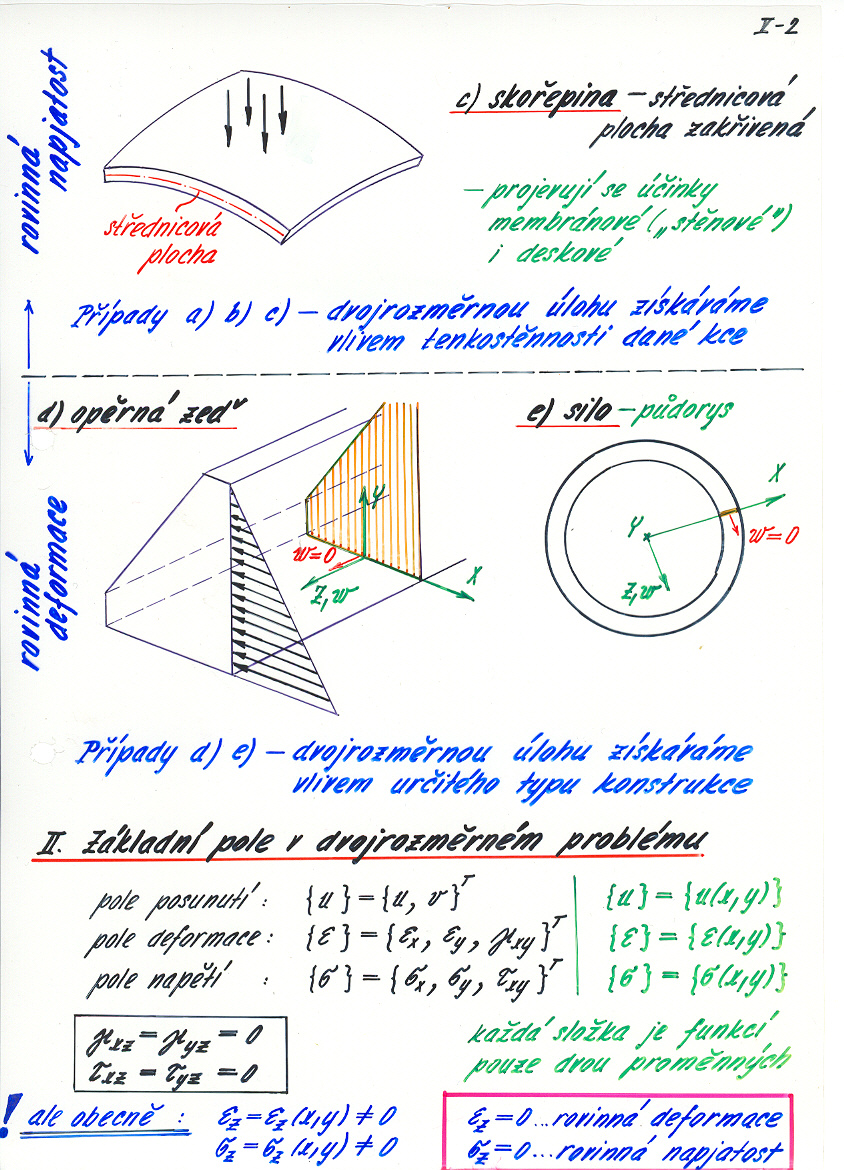 II-2
rovinná
napjatost
c) skořepina – střednicová
plocha zakřivená
– projevují se účinky
membránové („stěnové")
i deskové
střednicová
plocha
Případy a) b) c) – dvojrozměrnou úlohu získáváme
vlivem tenkostěnnosti dané kce
d) opěrná zeď
e) silo – půdorys
rovinná
deformace
y
w=0
z,w
x
x
y
w=0
z,w
Případy d) e) – dvojrozměrnou úlohu získáváme
vlivem určitého typu konstrukce
II. Základní pole v dvojrozměrném problému
pole posunutí: {u} = {u, v}^T {u} = {u(x,y)}
pole deformace: {ε} = {εx, εy, γxy}^T {ε} = {ε(x,y)}
pole napětí : {σ} = {σx, σy, τxy}^T {σ} = {σ(x,y)}
γxz = γyz = 0
τxz = τyz = 0
každá složka je funkcí
pouze dvou proměnných
! ale obecně : εz = εz(x,y) ≠ 0
σz = σz(x,y) ≠ 0
εz = 0 ... rovinná deformace
σz = 0 ... rovinná napjatost